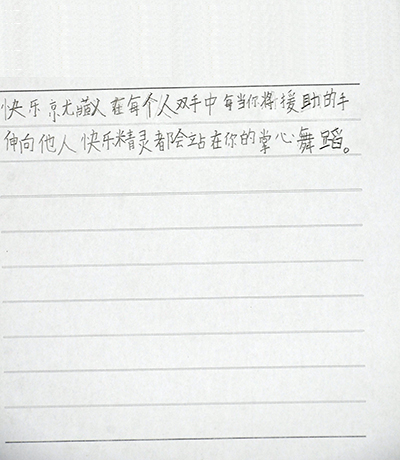 快乐就藏在每个人双手中每当你将援助的手
伸向他人快乐精灵都会站在你的掌心舞蹈。